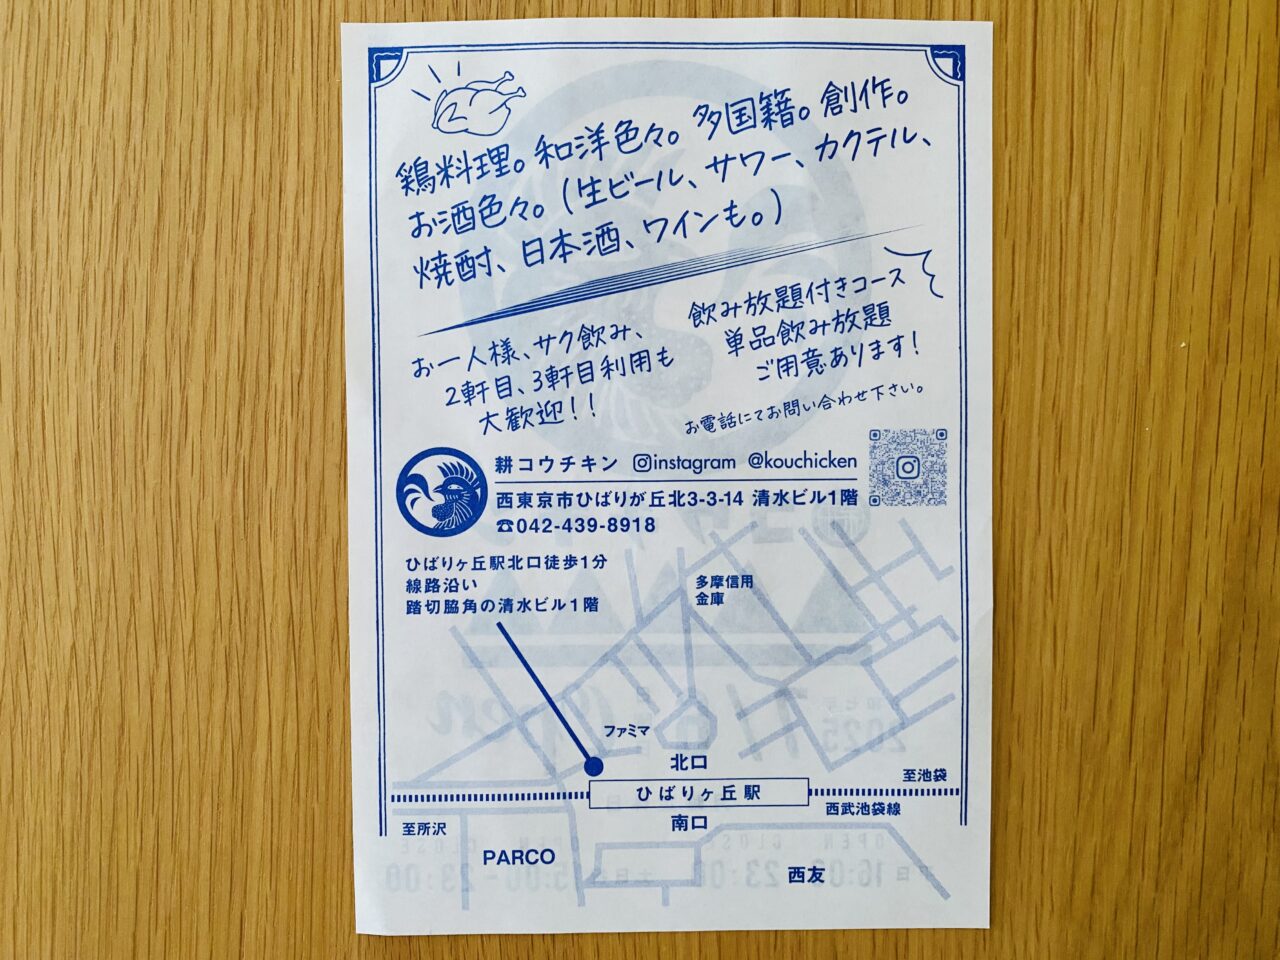 鶏料理。和洋色々。多国籍。創作。
お酒色々。(生ビール、サワー、カクテル、
焼酎、日本酒、ワインも。)
お一人様、サク飲み、
2軒目、3軒目利用も
大歓迎!!
飲み放題付きコース
単品飲み放題
ご用意あります!
お電話にてお問い合わせ下さい。
耕コウチキン instagram @kouchicken
西東京市ひばりが丘北3-3-14 清水ビル1階
☎042-439-8918
ひばりヶ丘駅北口徒歩1分
線路沿い
踏切脇角の清水ビル1階
多摩信用
金庫
ファミマ
北口
ひばりヶ丘駅
至池袋
西武池袋線
南口
至所沢
PARCO
西友